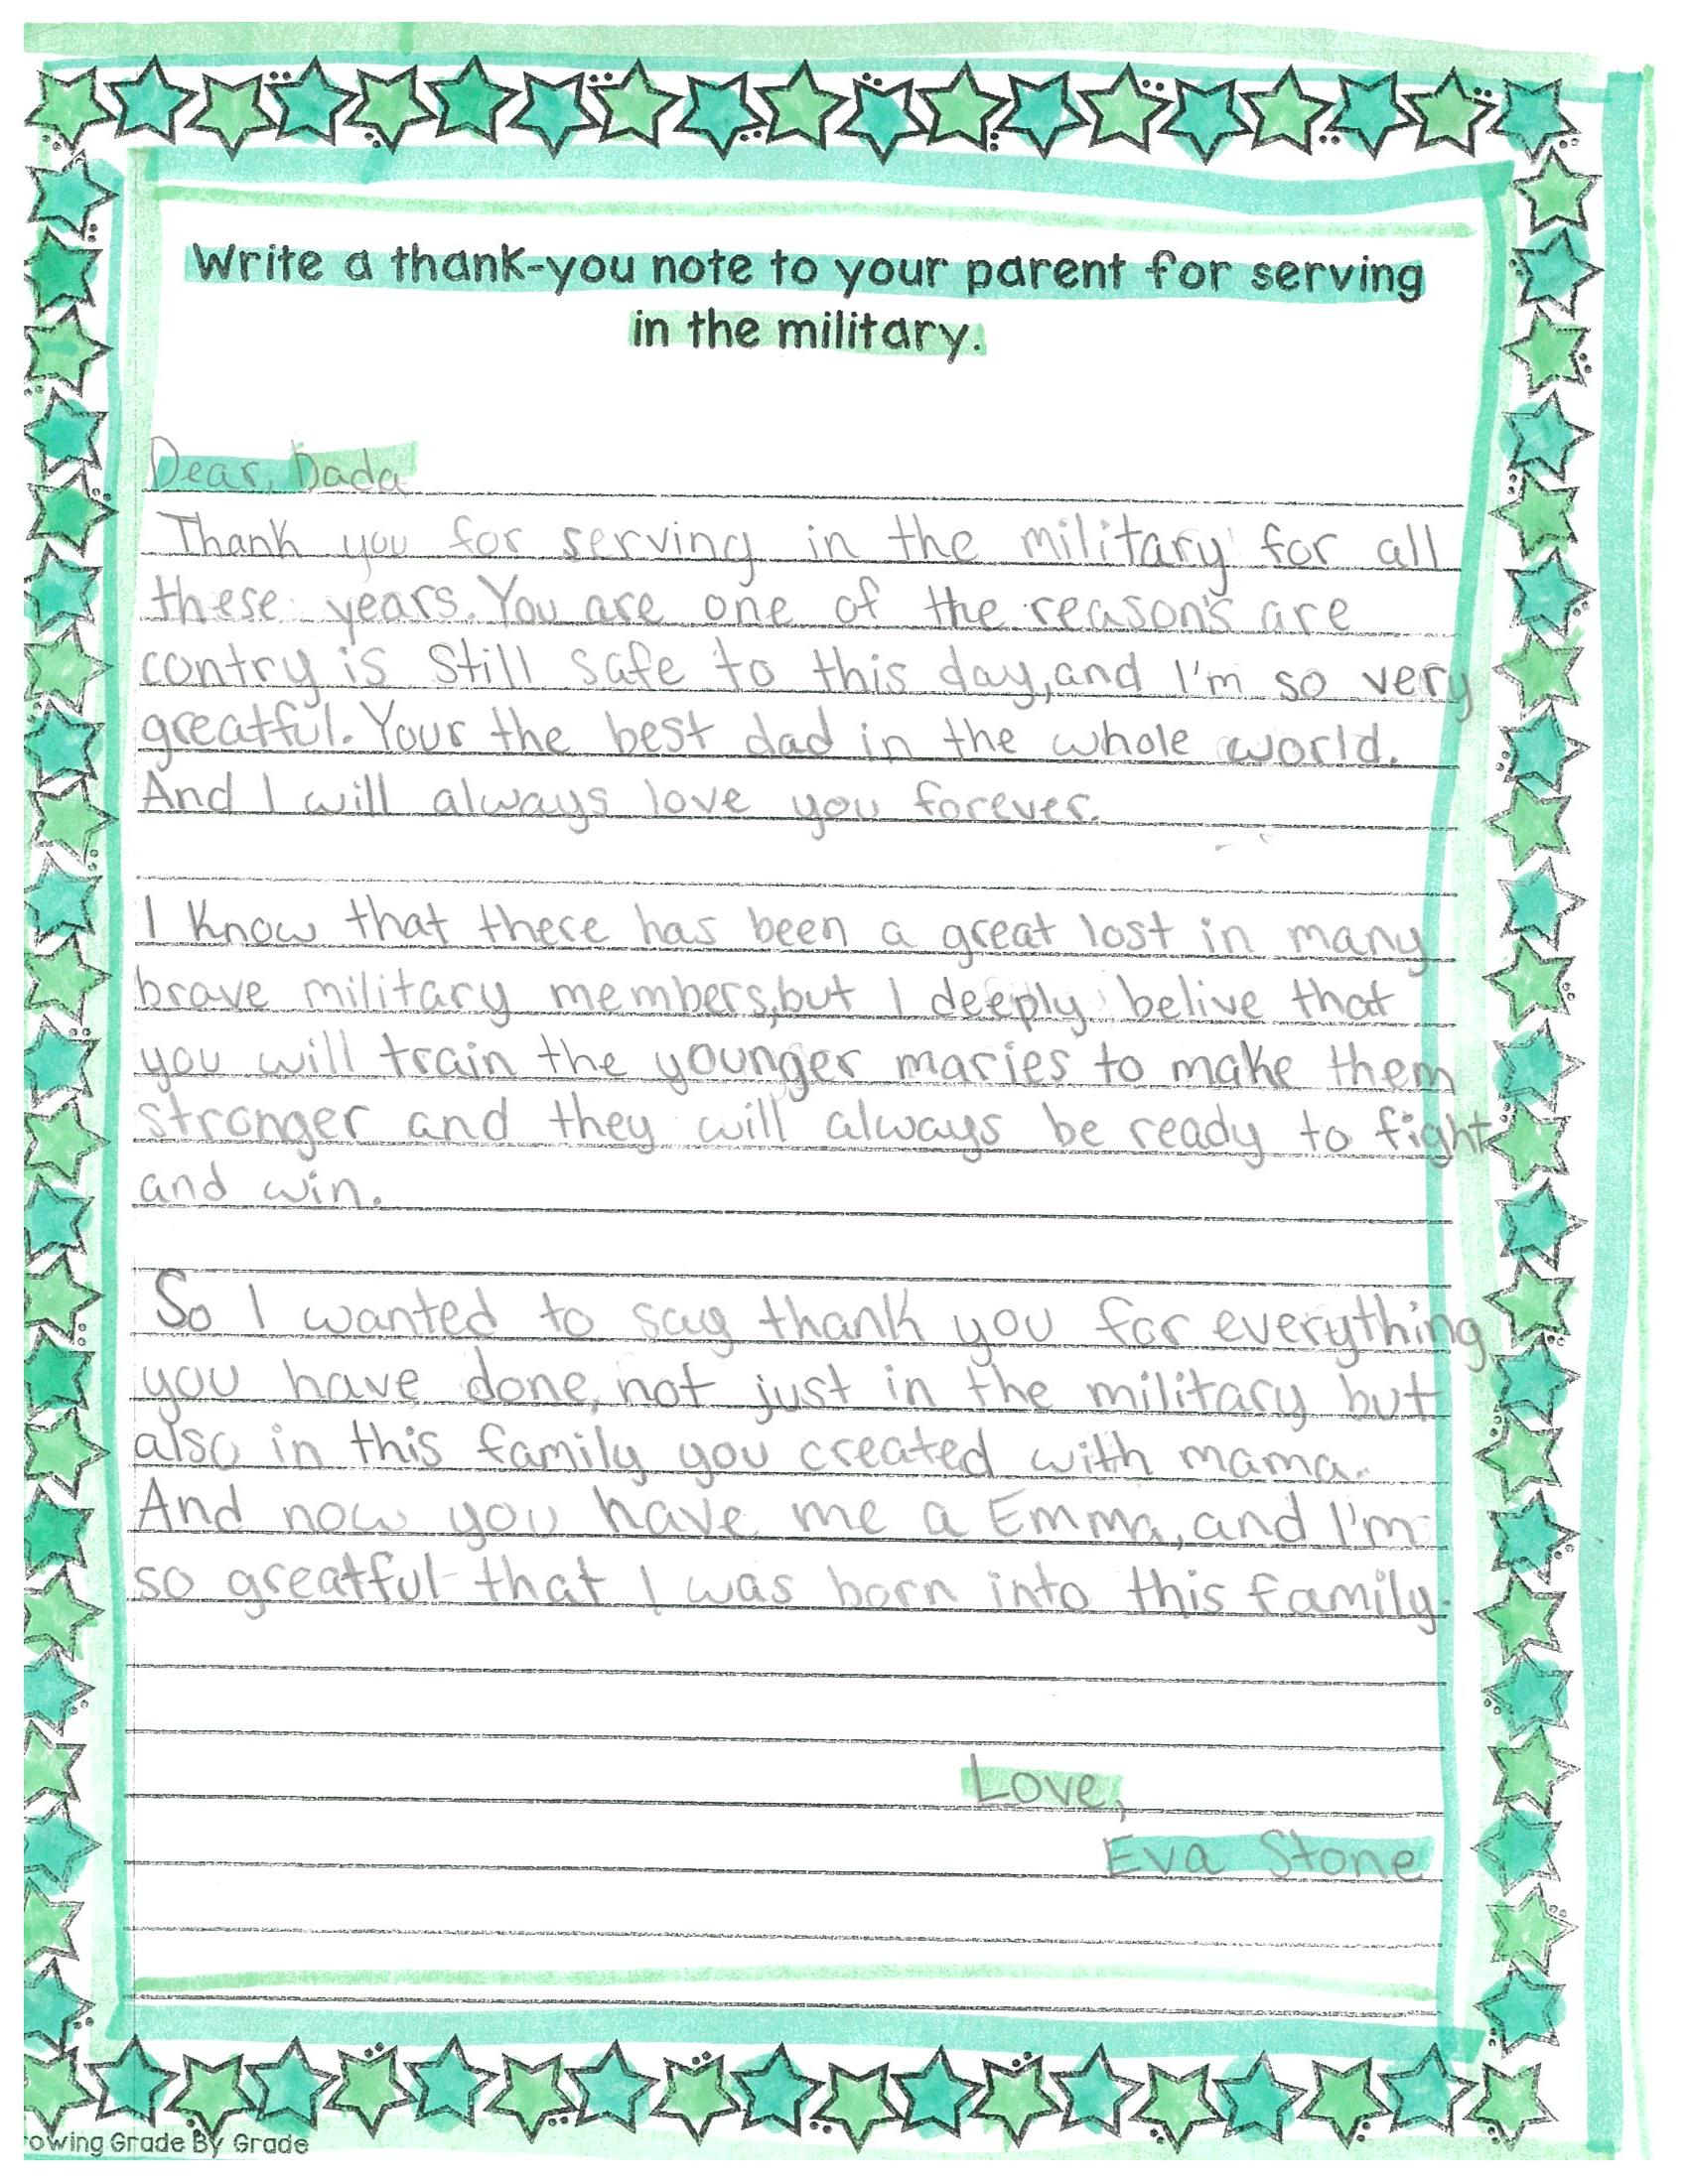 Write a thank-you note to your parent for serving
in the military.
Dear, Dada
Thank you for serving in the military for all
these years. You are one of the reason's are
contry is Still safe to this day, and I'm so very
greatful. Your the best dad in the whole world.
And I will always love you forever.
I know that there has been a great lost in many
brave military members, but I deeply belive that
you will train the younger maries to make them
stronger and they will always be ready to fight
and win.
So I wanted to say thank you for everything
you have done, not just in the military but
also in this family you created with mama.
And now you have me a Emma, and I'm
so greatful that I was born into this family.
Love,
Eva Stone
rowing Grade By Grade